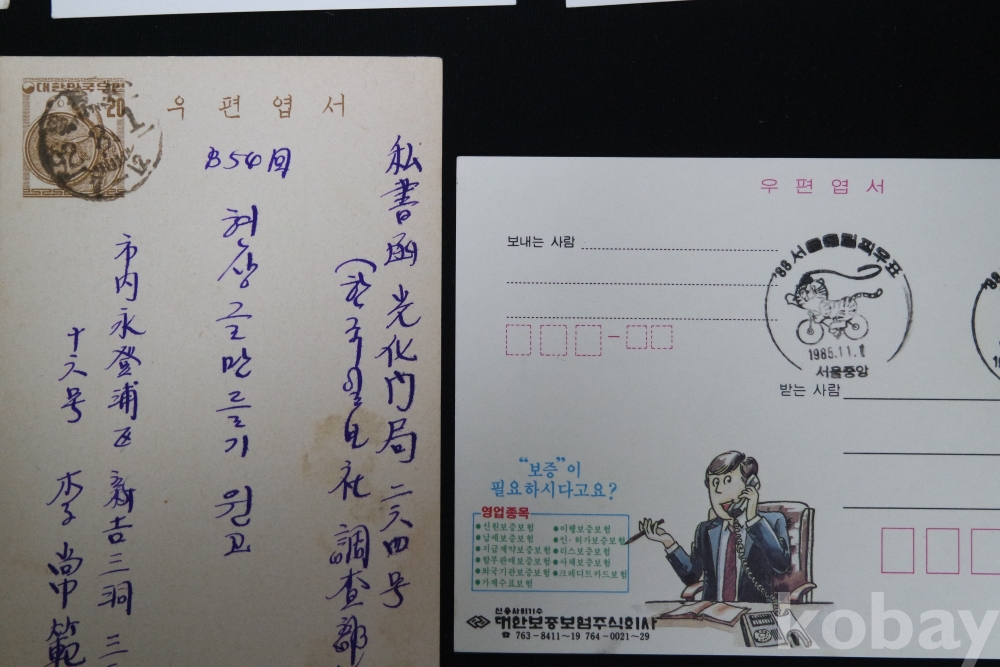 대한민국우편
20
우 편 엽 서
私書函 光化門局 二六四号
(한국일보社 調査部
854回
현상글만들기 원고
市内永登浦区 新吉三洞 三
十六号 李尚範
우 편 엽 서
보내는 사람
'88 서울올림픽우표
1985.11.1
서울중앙
받는 사람
"보증"이
필요하시다고요?
영업종목
●신원보증보험 ●이행보증보험
●납세보증보험 ●인·허가보증보험
●지급계약보증보험 ●리스보증보험
●할부판매보증보험 ●사채보증보험
●외국기관보증보험 ●크레디트카드보험
●가계수표보험
신용사회기수
대한보증보험주식회사
☎ 763-8411~19 764-0021~29
kobay